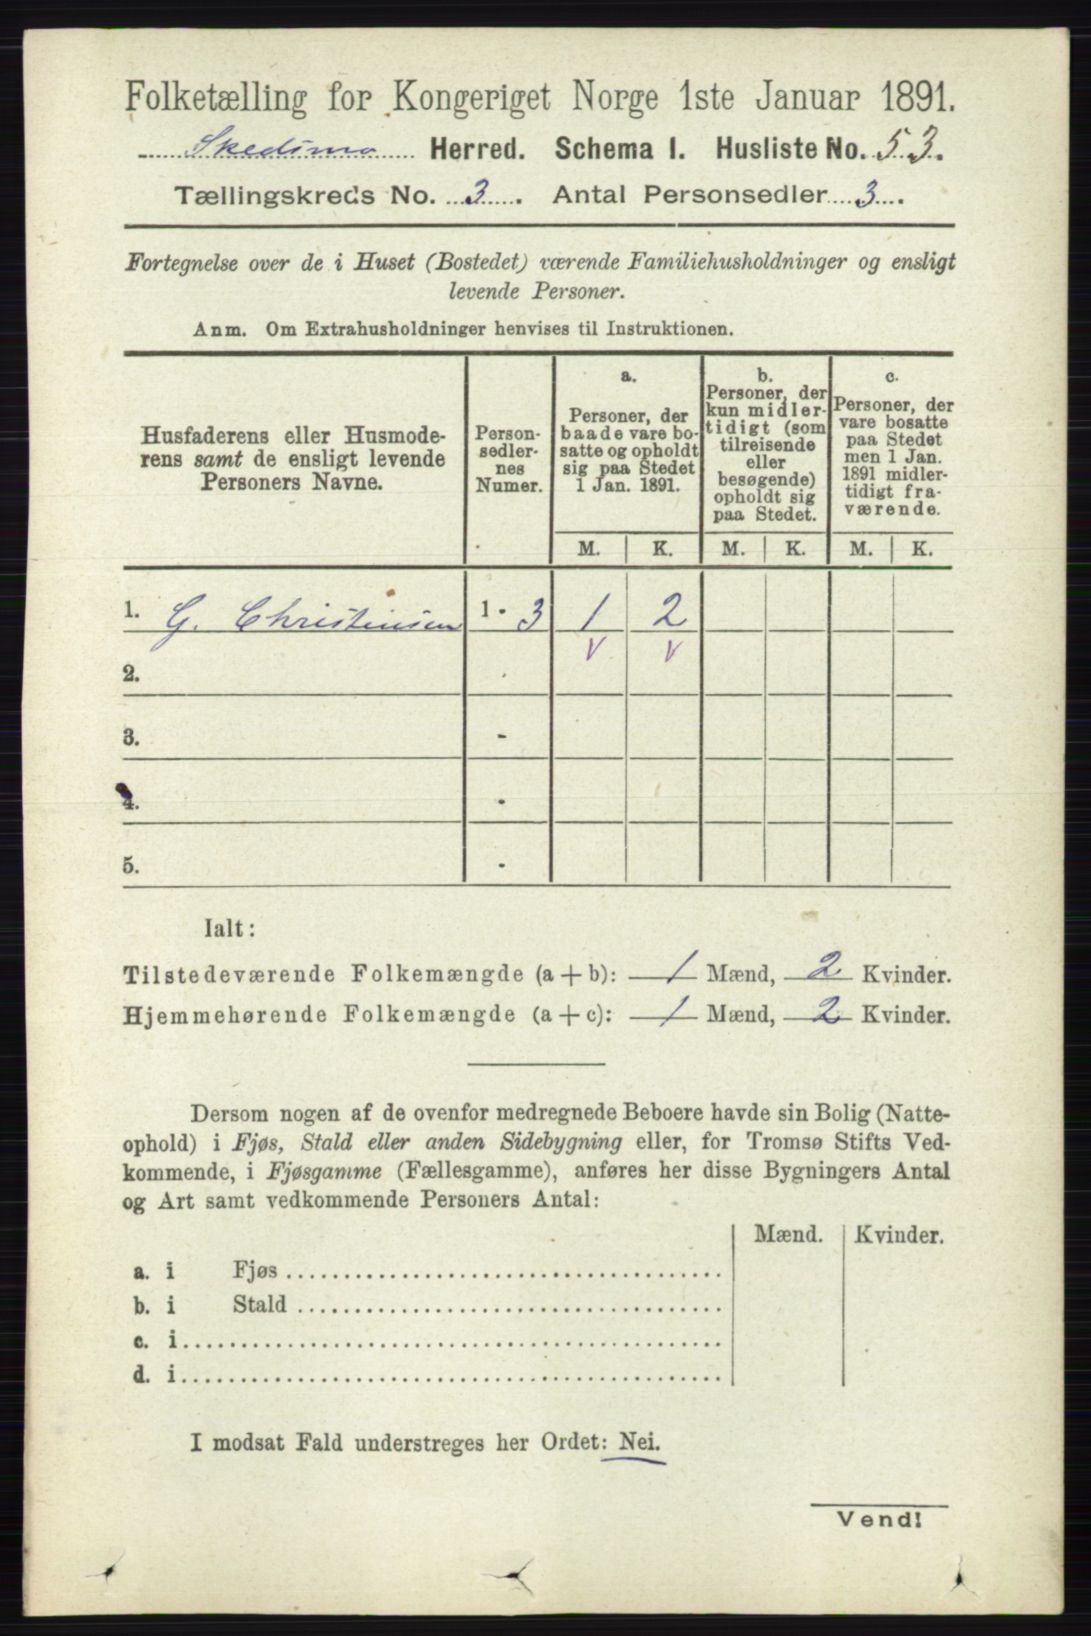 Folketælling for Kongeriget Norge 1ste Januar 1891.
Skedsmo Herred. Schema I. Husliste No. 53.
Tællingskreds No. 3. Antal Personsedler 3.
Fortegnelse over de i Huset (Bostedet) værende Familiehusholdninger og ensligt
levende Personer.
Anm. Om Extrahusholdninger henvises til Instruktionen.
Husfaderens eller Husmode-
rens samt de ensligt levende
Personers Navne.
Person-
sedler-
nes
Numer.
a.
Personer, der
baade vare bo-
satte og opholdt
sig paa Stedet
1 Jan. 1891.
b.
Personer, der
kun midler-
tidigt (som
tilreisende
eller
besøgende)
opholdt sig
paa Stedet.
c.
Personer, der
vare bosatte
paa Stedet
men 1 Jan.
1891 midler-
tidigt fra-
værende.
M. K. M. K. M. K.
1. G. Christensen 1 - 3 1 2
v v
2.
3. -
4. -
5. -
Ialt:
Tilstedeværende Folkemængde (a + b): 1 Mænd, 2 Kvinder.
Hjemmehørende Folkemængde (a + c): 1 Mænd, 2 Kvinder.
Dersom nogen af de ovenfor medregnede Beboere havde sin Bolig (Natte-
ophold) i Fjøs, Stald eller anden Sidebygning eller, for Tromsø Stifts Ved-
kommende, i Fjøsgamme (Fællesgamme), anføres her disse Bygningers Antal
og Art samt vedkommende Personers Antal:
Mænd. Kvinder.
a. i Fjøs
b. i Stald
c. i
d. i
I modsat Fald understreges her Ordet: Nei.
Vend!